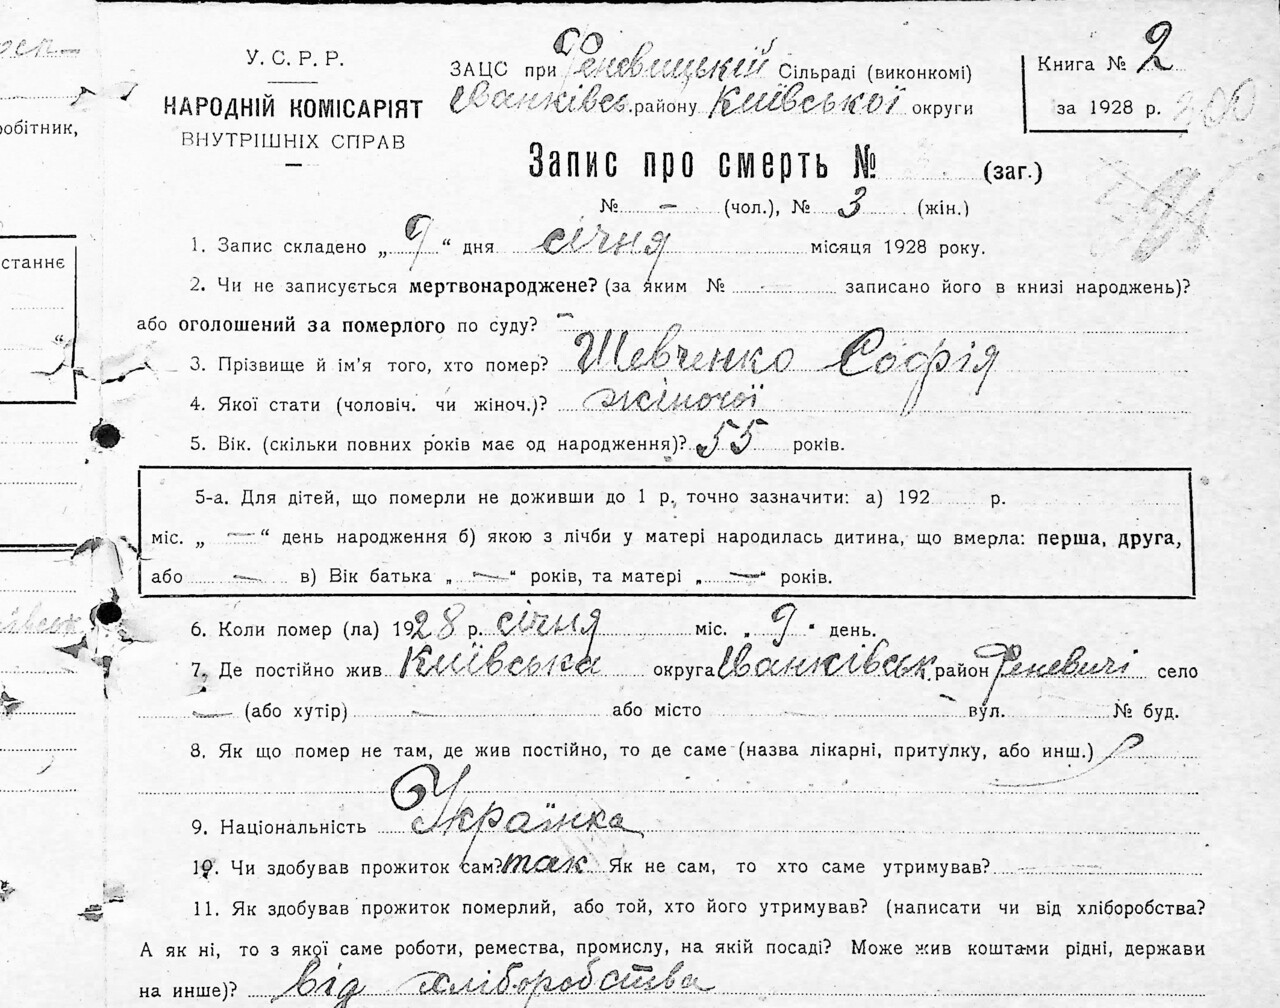 У. С. Р. Р.
НАРОДНІЙ КОМІСАРІЯТ
ВНУТРІШНІХ СПРАВ
ЗАЦС при Феневицькій Сільраді (виконкомі)
Іванківсь. району Київської округи
Книга № 2
за 1928 р. 200
Запис про смерть № (заг.)
№ — (чол.), № 3 (жін.)
1. Запис складено „ 9 “ дня січня місяця 1928 року.
2. Чи не записується мертвонароджене? (за яким № — записано його в книзі народжень)?
або оголошений за померлого по суду? —
3. Прізвище й ім'я того, хто помер? Шевченко Софія
4. Якої стати (чоловіч. чи жіноч.)? жіночої
5. Вік. (скільки повних років має од народження)? 55 років.
5-а. Для дітей, що померли не доживши до 1 р. точно зазначити: а) 192 р.
міс. „ — “ день народження б) якою з лічби у матері народилась дитина, що вмерла: перша, друга,
або — в) Вік батька „ — “ років, та матері „ — “ років.
6. Коли помер (ла) 1928 р. січня міс. „ 9 “ день.
7. Де постійно жив Київська округа Іванківськ район Феневичі село
— (або хутір) — або місто — вул. № буд.
8. Як що помер не там, де жив постійно, то де саме (назва лікарні, притулку, або инш.)
9. Національність Українка
10. Чи здобував прожиток сам? так Як не сам, то хто саме утримував? —
11. Як здобував прожиток померлий, або той, хто його утримував? (написати чи від хліборобства?
А як ні, то з якої саме роботи, ремества, промислу, на якій посаді? Може жив коштами рідні, держави
на инше)? Від хліборобства
обітник,
станнє